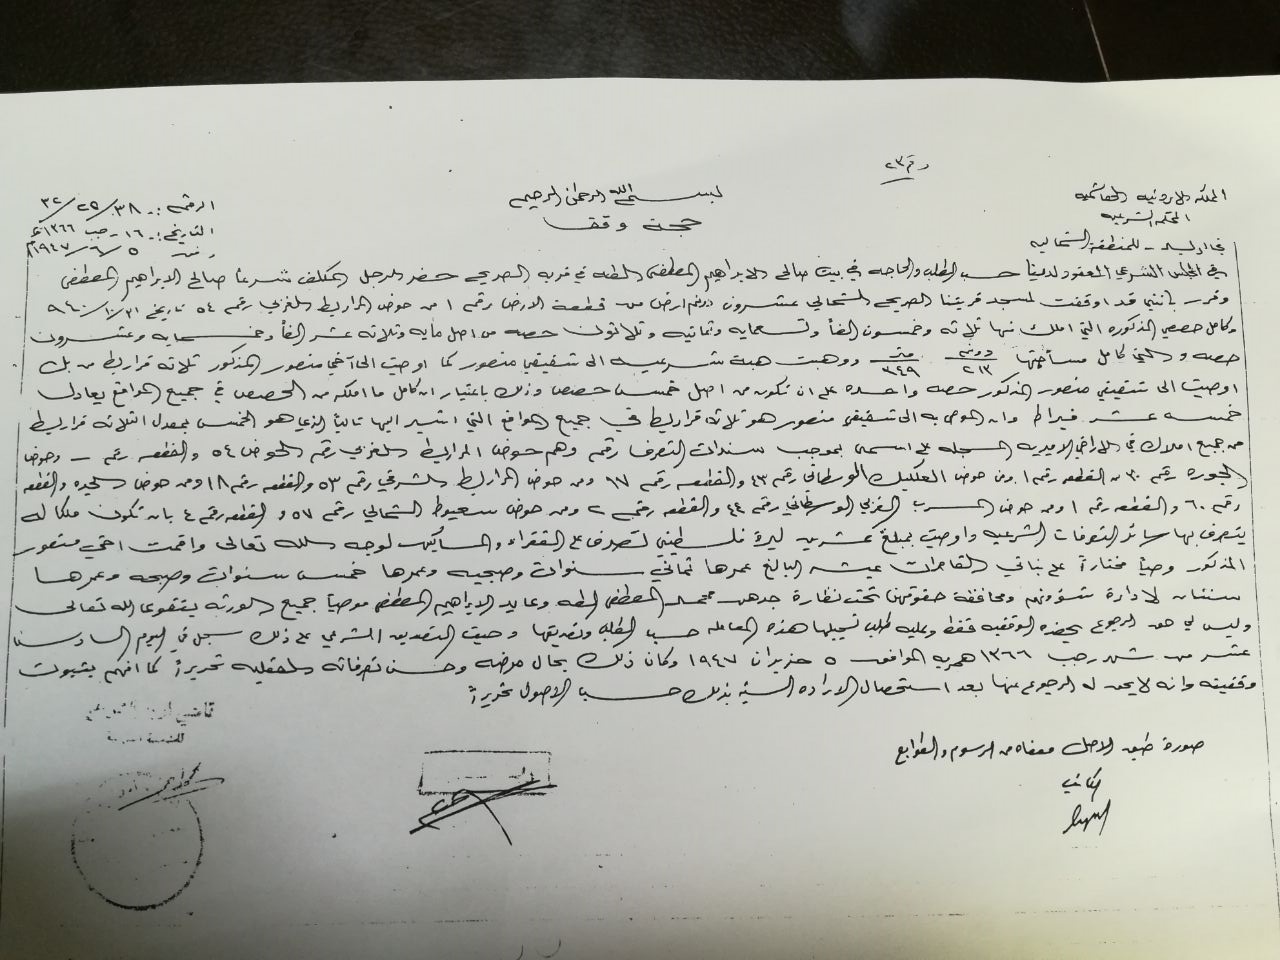 رقم ٢٣
المملكه الاردنيه الهاشميه
المحكمه الشرعيه
في اربد - للمنطقة الشماليه
بسم الله الرحمن الرحيم
حجة وقف
الرقم :- ٣٨/٢٥/٣٢
التاريخ :- ١٦ رجب ١٣٦٦ هـ
٥/٦/١٩٤٧م
في المجلس الشرعي المعقود لدينا حسب الطلب والحاجه في بيت صالح الابراهيم المصطفى الطه في قرية الصريح حضر الرجل المكلف شرعا صالح الابراهيم المصطفى
وقرر بأنني قد اوقفت لمسجد قريتنا الصريح الشمالي عشرون ارض من قطعة الارض رقم ١ من حوض المرابيط الغربي رقم ٥٤ تاريخ ٣١/١٠/٩٤٠
وكامل حصصي المذكوره التي املك منها ثلاثة وخمسون الفا وتسعمايه وثمانيه وثلاثون حصه من اصل مايه وثلاثة عشر الفا وخمسمايه وعشرون
حصه والتي كامل مساحتها دونم ٢١٣ متر ٣٤٩ ووهبت هبة شرعيه الى شقيقي منصور كما اوصيت الى اخي منصور المذكور ثلاثة قراريط من بل
اوصيت الى شقيقي منصور المذكور حصه واحده على ان تكون من اصل خمس حصص وذلك باعتبار ان كامل ما املكه من الحصص في جميع المواقع يعادل
خمسه عشر قيراط وان الموصى به الى شقيقي منصور هو ثلاثة قراريط في جميع المواقع التي اشير اليها تاليا الذي هو الخمس بمعدل الثلاثة قراريط
من جميع املاك في الاراضي الاميريه المسجله على اسمي بموجب سندات التصرف رقم وهم حوض المرابيط الغربي رقم الحوض ٥٤ والقطعه رقم - وحوض
الجوره رقم ٣٠ من القطعه رقم ١ ومن حوض الوسطاني رقم ٤٣ والقطعه رقم ١٧ ومن حوض المرابيط الشرقي رقم ٥٣ والقطعه رقم ١٨ ومن حوض والقطعه
رقم ٦٠ والقطعه رقم ١ ومن حوض الغربي الوسطاني رقم ٤٤ والقطعه رقم ٢ ومن حوض الشمالي رقم ٥٧ والقطعه رقم ٤ بان تكون ملكا له
يتصرف بها سائر التصرفات الشرعيه واوصيت بمبلغ عشرين ليرة فلسطيني لتصرف على الفقراء والمساكين لوجه الله تعالى واقمت اخي منصور
المذكور وصيا مختارا على بناتي القاصرات عيشه البالغ عمرها ثماني سنوات وصبحيه وعمرها خمس سنوات وصبحه وعمرها
سنتان لادارة شؤونهم ومحافظة حقوقهن تحت نظارة جدهن محمد المصطفى الطه وعايد الابراهيم المصطفى موصيا جميع الورثه بتقوى الله تعالى
وليس لي حق الرجوع بهذه الوقفيه فقط وعليه طلب تسجيلها هذه المعامله حسب الطلب وتصديقها وصيت التصديق الشرعي على ذلك سجل في اليوم السادس
عشر من شهر رجب ١٣٦٦ هجريه الموافق ٥ حزيران ١٩٤٧ وكان ذلك بحال مرضه وحسن تصرفاته العقليه تحريرا كما افهم بثبوت
وقفيته وانه لا يحق له الرجوع عنها بعد استحصال الاراده السنيه بذلك حسب الاصول تحريرا
صورة طبق الاصل معفاه من الرسوم والطوابع
الكاتب
قاضي اربد الشرعي